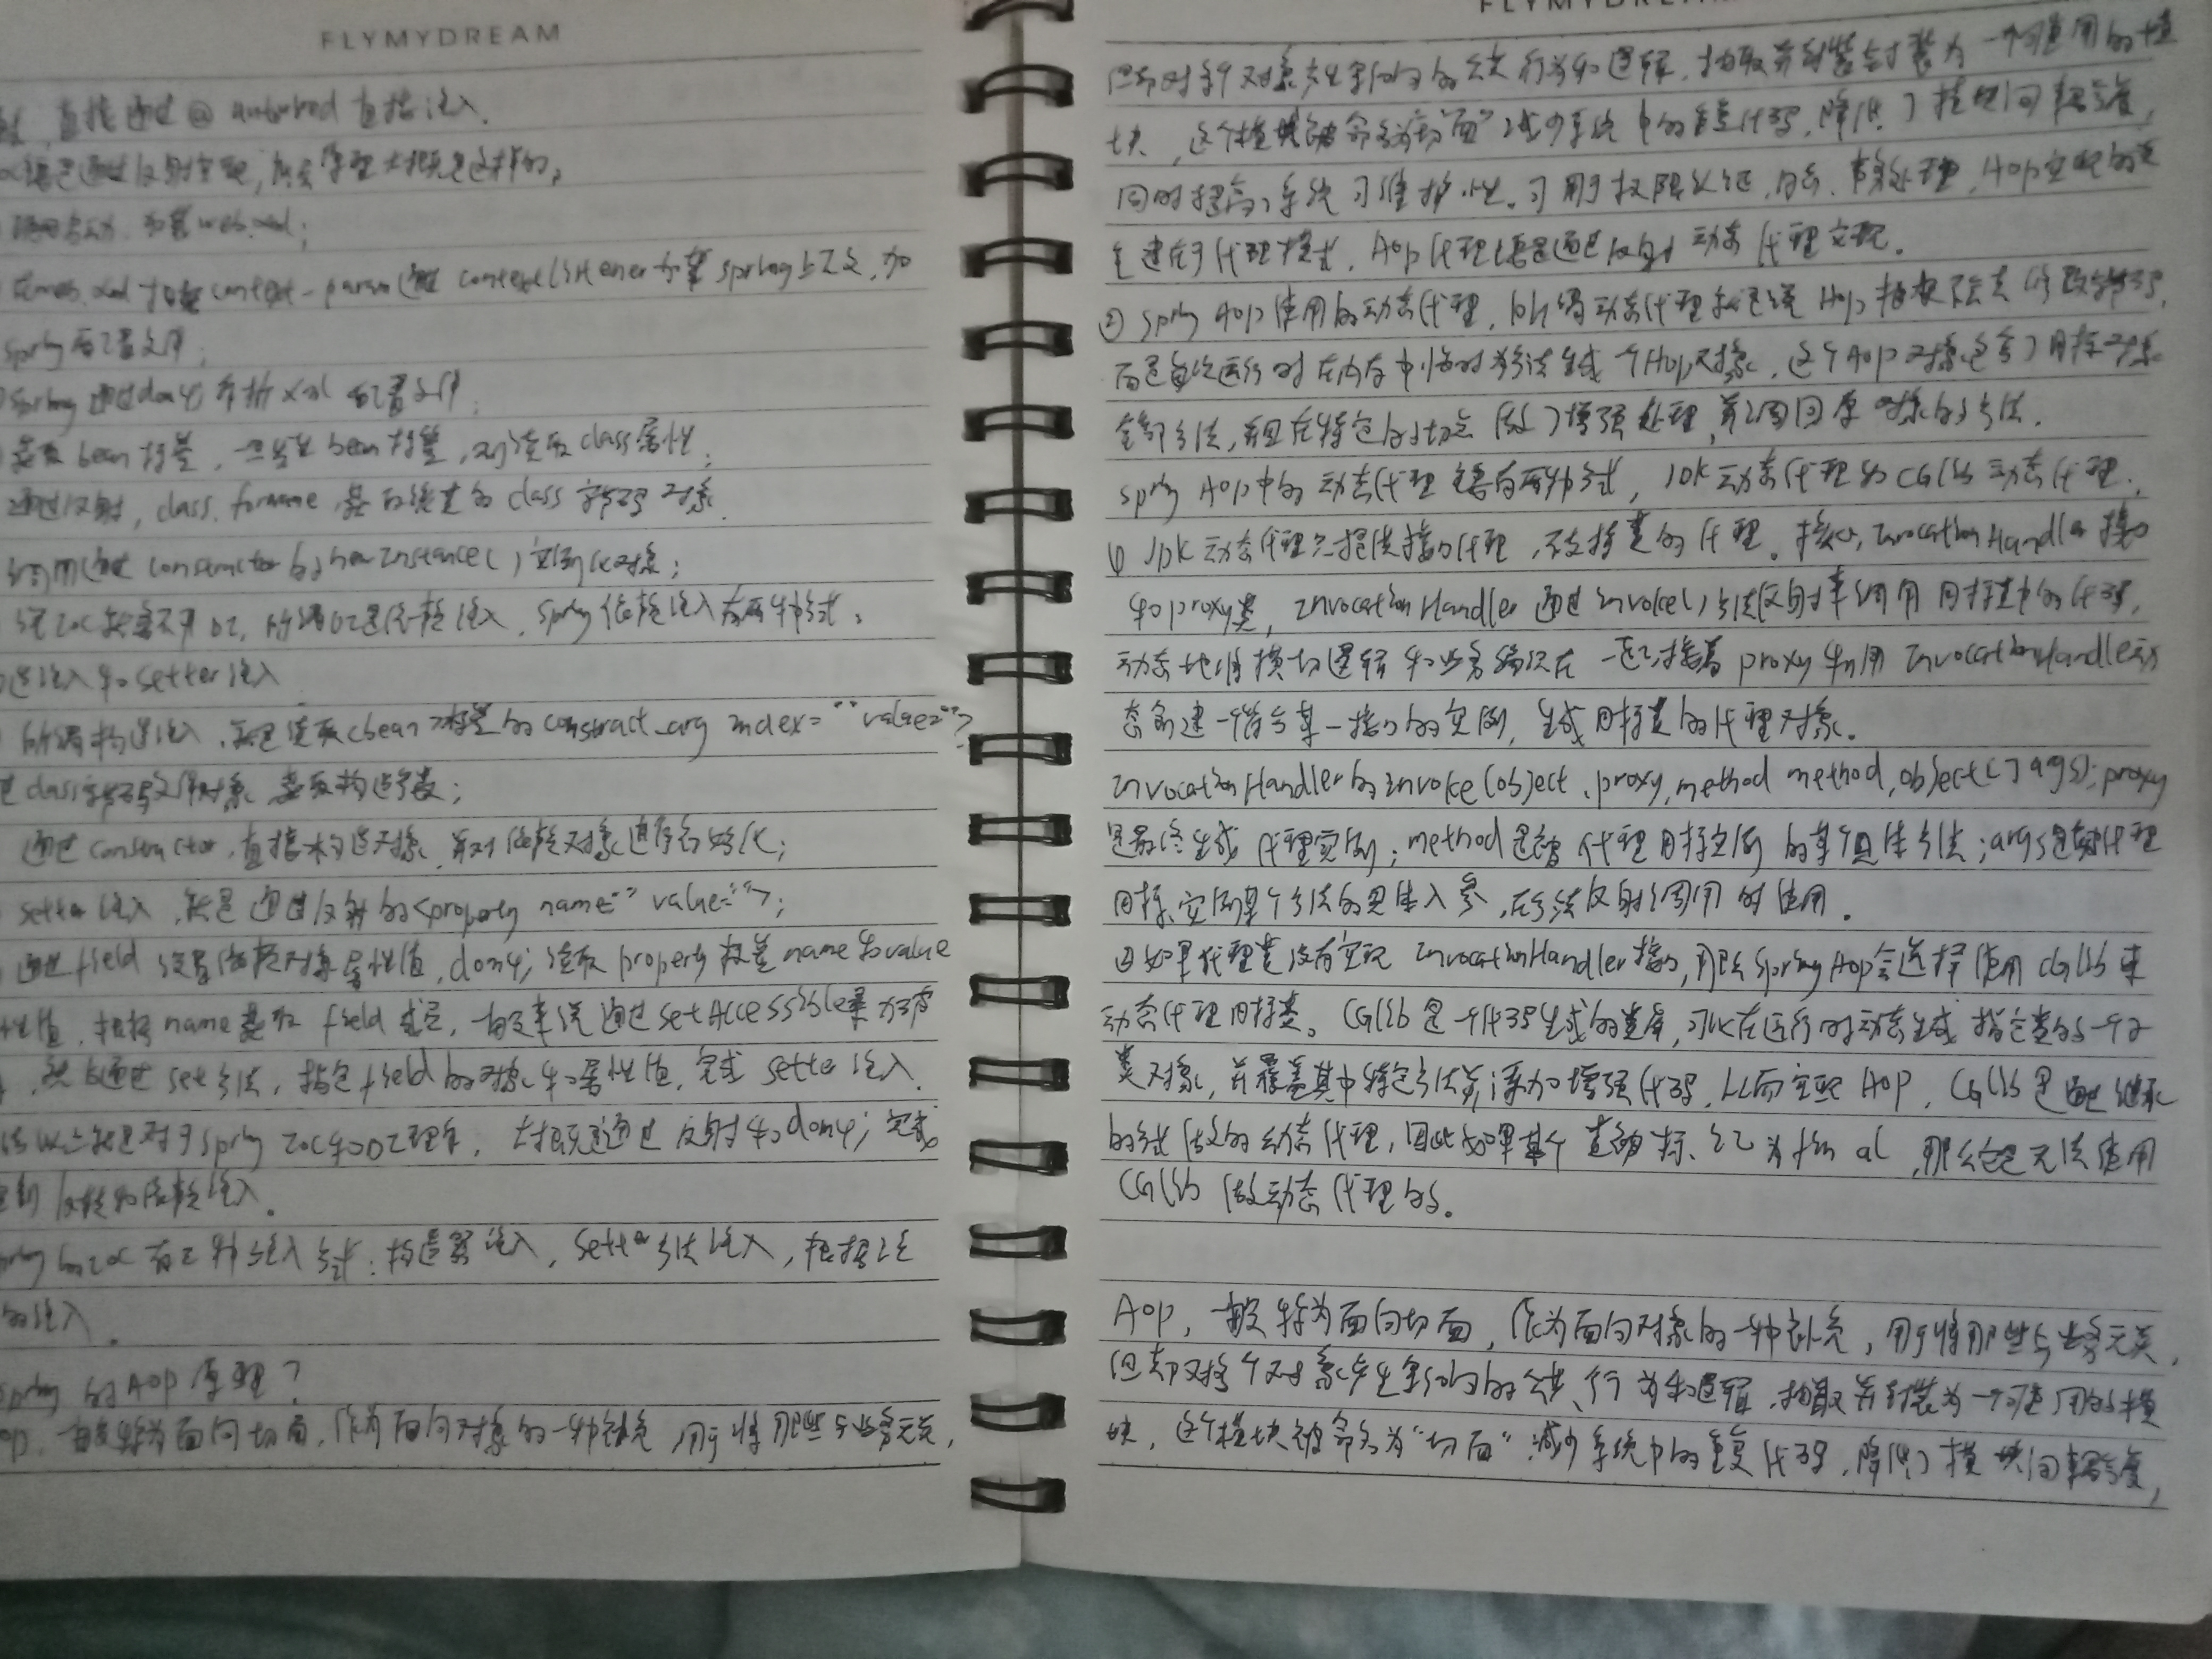 FLYMYDREAM
直接通过@autowired直接注入.
都是通过反射实现,底层原理大概是这样的。
配置web.xml;
在web.xml加载context-param,通过contextListener加载spring上下文,加
spring配置文件;
spring通过dom4j解析xml配置文件;
获取bean标签,一旦发生bean标签,则读取class属性;
通过反射, class.forname 获取该类的class字节码对象.
调用(通过constructor的newInstance())实例化对象;
IOC就离不开DI,所谓DI是依赖注入,spring依赖注入有两种方式:
造注入和setter注入
所谓构造注入,就是读取<bean>标签的construct_arg index="" value="">
class字节码文件对象,获取构造参数;
通过constructor,直接构造对象,并对依赖对象进行初始化;
setter注入,就是通过反射的<property name="" value="">;
通过field设置依赖对象属性值,dom4j读取property标签name和value
性值,根据name获取field成员,一般来说通过setAccessible来
,然后通过set方法,指定field的对象和属性值,完成setter注入.
以上就是对于spring IOC和DI理解,大概是通过反射和dom4j完成
控制反转和依赖注入.
spring的IOC有三种注入方式:构造器注入, setter方法注入,根据注
的注入.
spring的AOP原理?
AOP,一般称为面向切面,作为面向对象的一种补充,用于将那些与业务无关,
FLYMYDREAM
但却对多个对象产生影响的公共行为和逻辑,抽取并封装为一个可重用的模
块,这个模块被命名为"切面"减少系统中的重复代码,降低了模块间耦合度,
同时提高了系统可维护性。可用于权限认证,日志,事务处理, AOP实现的关
键在于代理模式, AOP代理主要是通过反射动态代理实现.
② spring AOP使用的动态代理,所谓动态代理就是说AOP框架不会去修改字节码,
而是每次运行时在内存中临时为方法生成一个AOP对象,这个AOP对象包含了目标对象
全部方法,并且在特定的切点做了增强处理,并回调原对象的方法.
spring AOP中的动态代理主要有两种方式, JDK动态代理和CGlib动态代理.
① JDK动态代理只提供接口代理,不支持类的代理。核心, InvocationHandler接口
和proxy类, InvocationHandler通过invoke()方法反射来调用目标类中的代码,
动态地将横切逻辑和业务编织在一起;接着proxy利用InvocationHandler动
态创建一个符合某一接口的实例,生成目标类的代理对象.
InvocationHandler的invoke(object.proxy,method method,object[] args);proxy
是最终生成代理实例;method是被代理目标实例的某个具体方法;args是被代理
目标实例某个方法的具体入参,在方法反射调用时使用.
②如果代理类没有实现InvocationHandler接口,那么spring AOP会选择使用CGlib来
动态代理目标类。CGlib是一个代码生成的类库,可以在运行时动态生成指定类的一个子
类对象,并覆盖其中特定方法并添加增强代码,从而实现AOP, CGlib是通过继承
的方式做的动态代理,因此如果某个类被标记为final,那么它是无法使用
CGlib做动态代理的.
AOP,一般称为面向切面,作为面向对象的一种补充,用于将那些与业务无关,
但却对多个对象产生影响的公共行为和逻辑,抽取并封装为一个可重用的模
块,这个模块被命名为"切面",减少系统中的重复代码,降低了模块间耦合度,